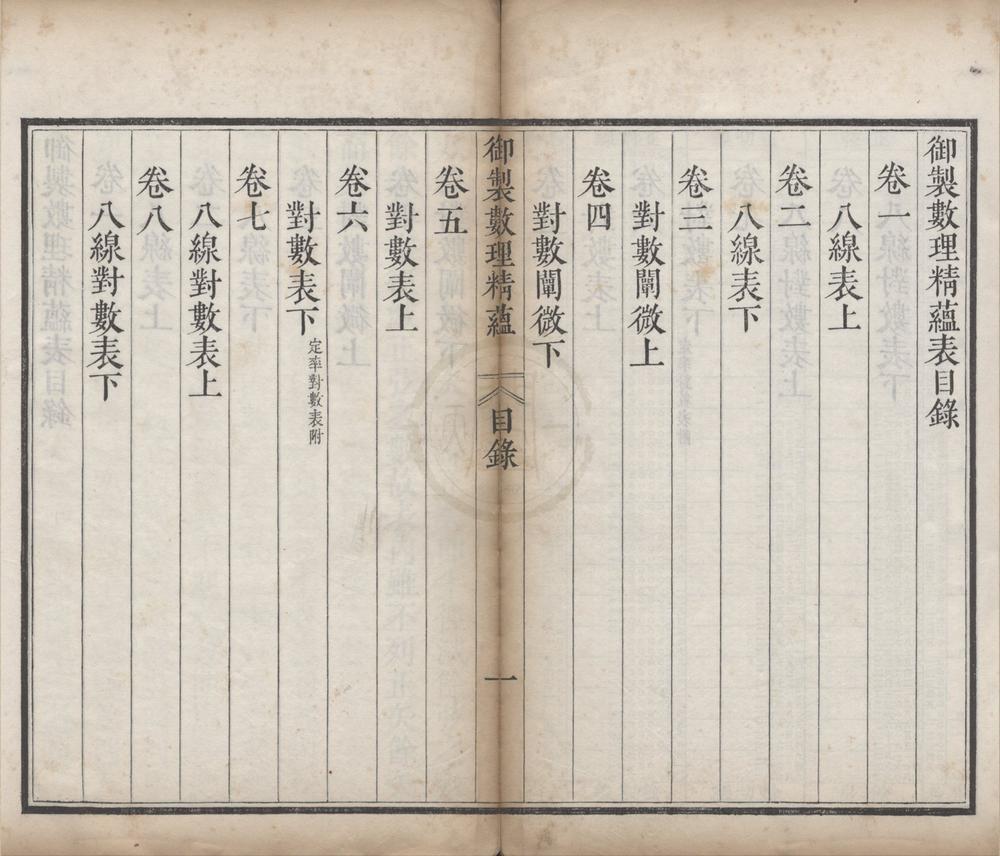 御製數理精蘊表目錄
卷一
八線表上
卷二
八線表下
卷三
對數闡微上
卷四
對數闡微下
御製數理精蘊 目錄 一
卷五
對數表上
卷六
對數表下 定率對數表附
卷七
八線對數表上
卷八
八線對數表下